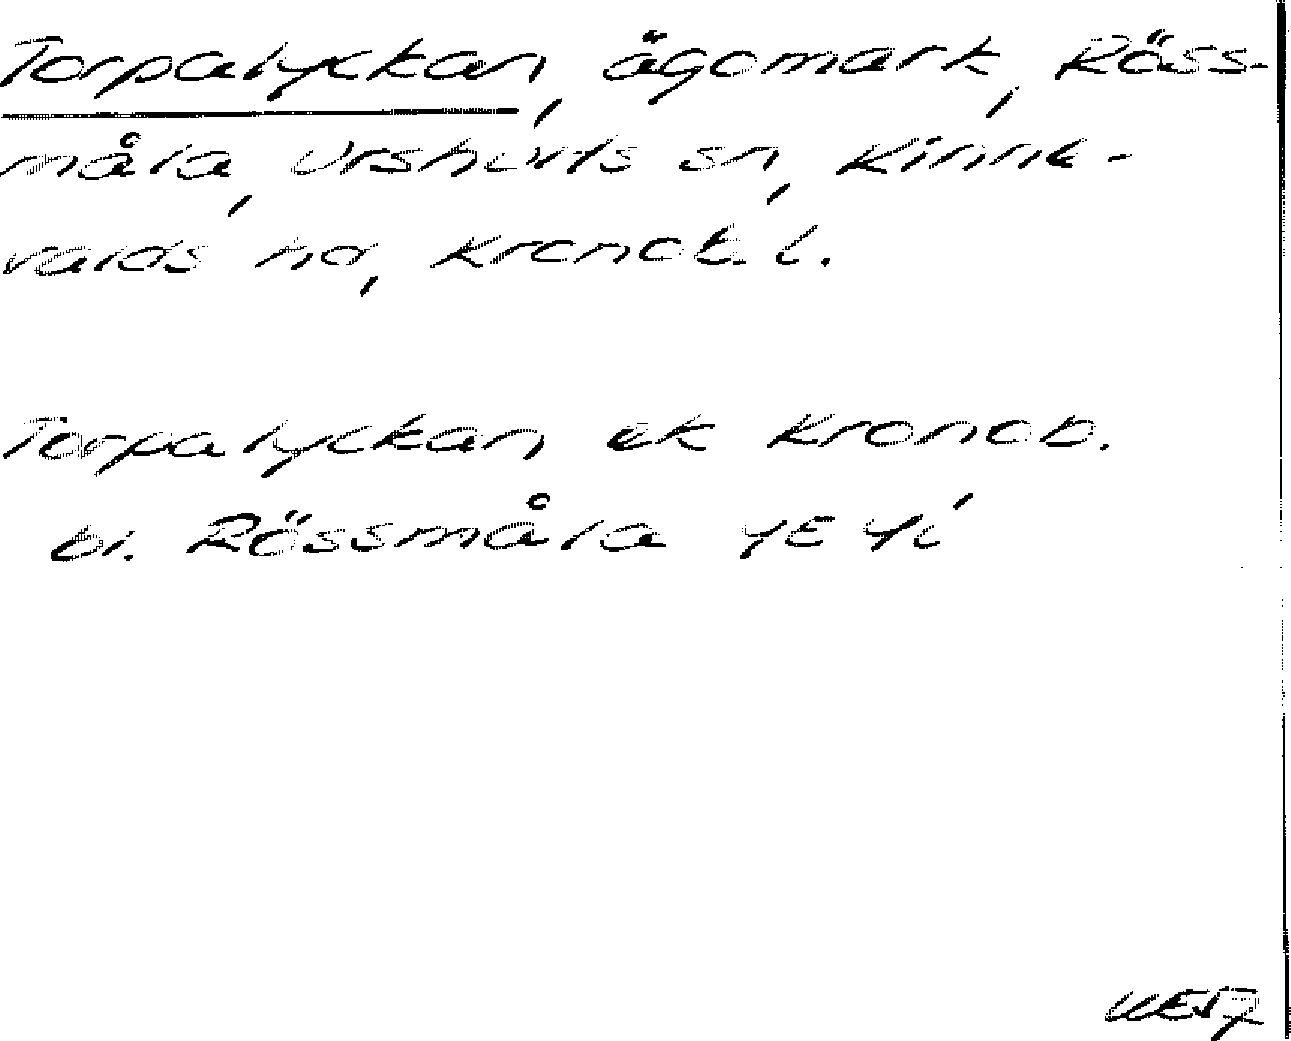 Torpalyckan, ägomark, Röss-
måla, Urshults sn, Kinne-
valds hd, Kronob. l.
Torpalyckan ek Kronob.
bl. Rössmåla 4E 4i